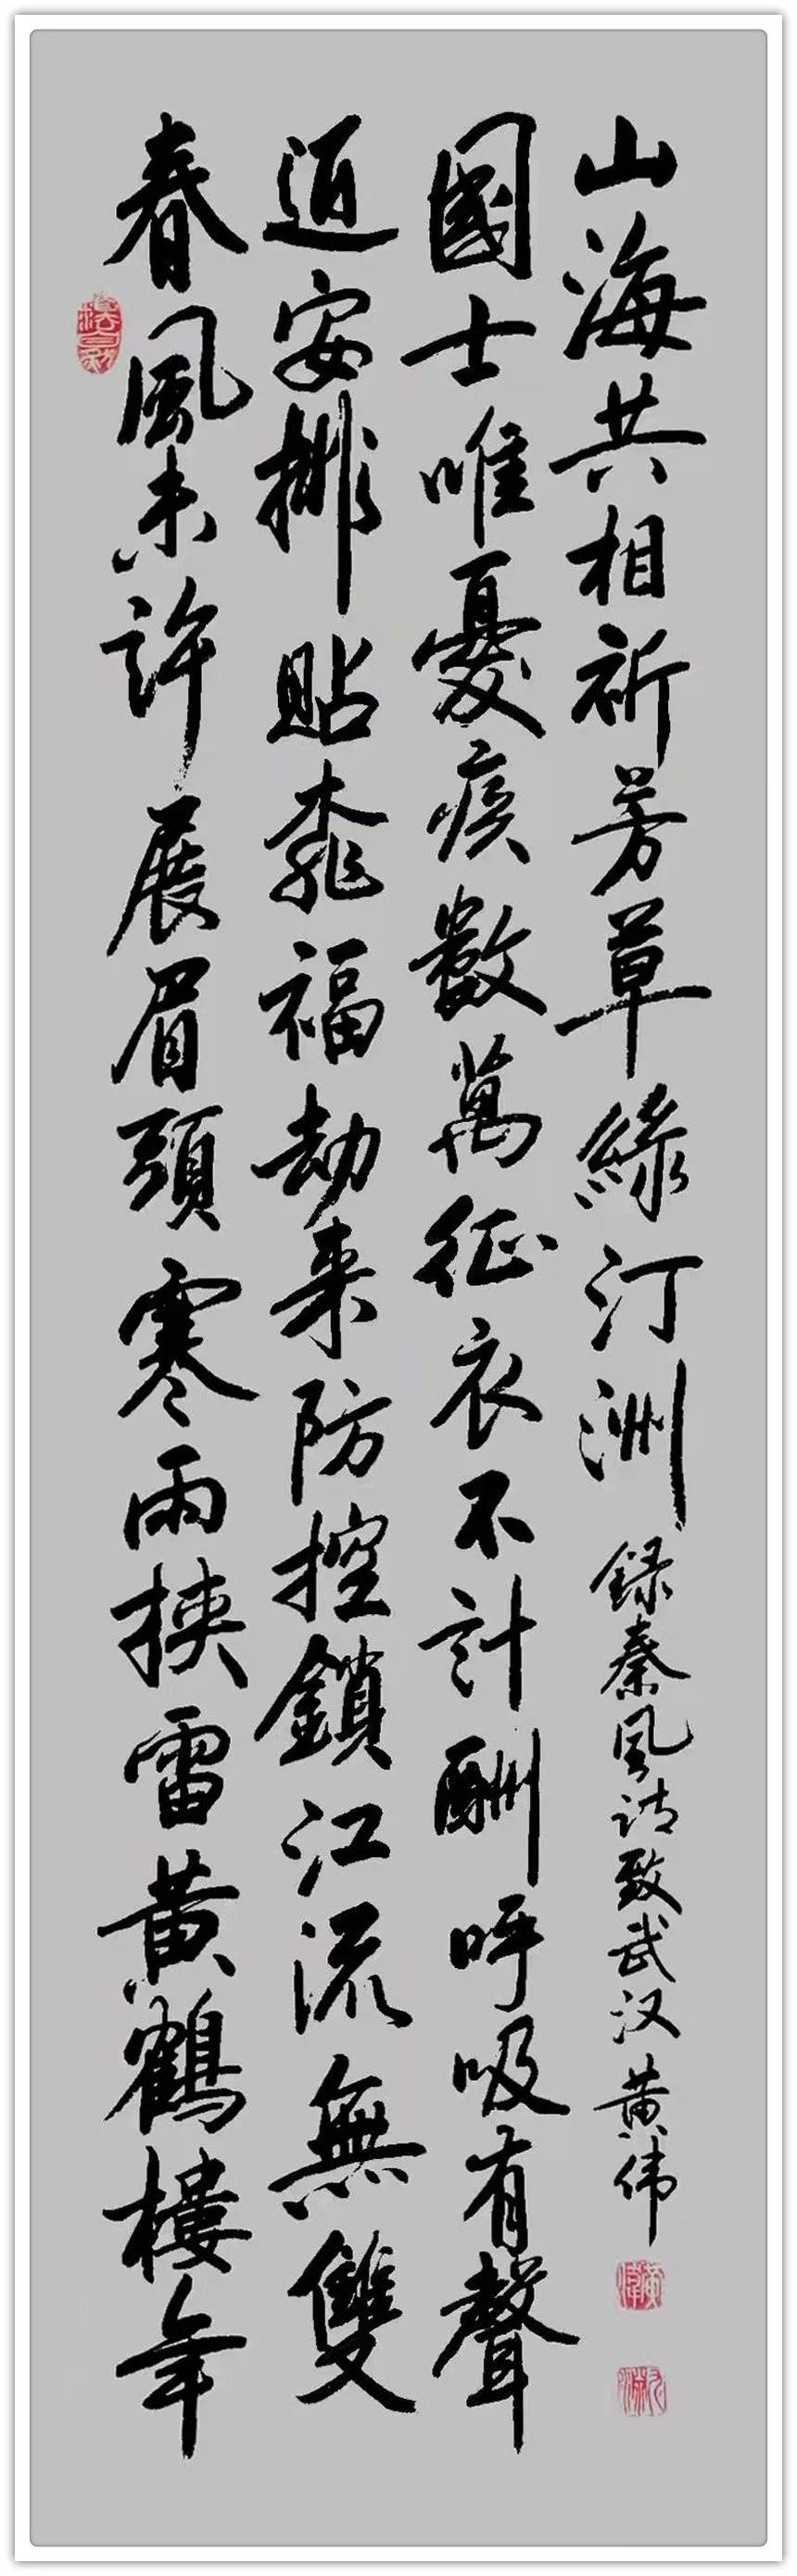 春風未許展眉頭寒雨挾雷黃鶴樓年
迫安排貼桃福劫来防控鎖江流無雙
國士唯憂疾數萬征衣不計酬呼吸有聲
山海共相祈芳草綠汀洲
錄秦風诗致武汉 黄伟
黃偉